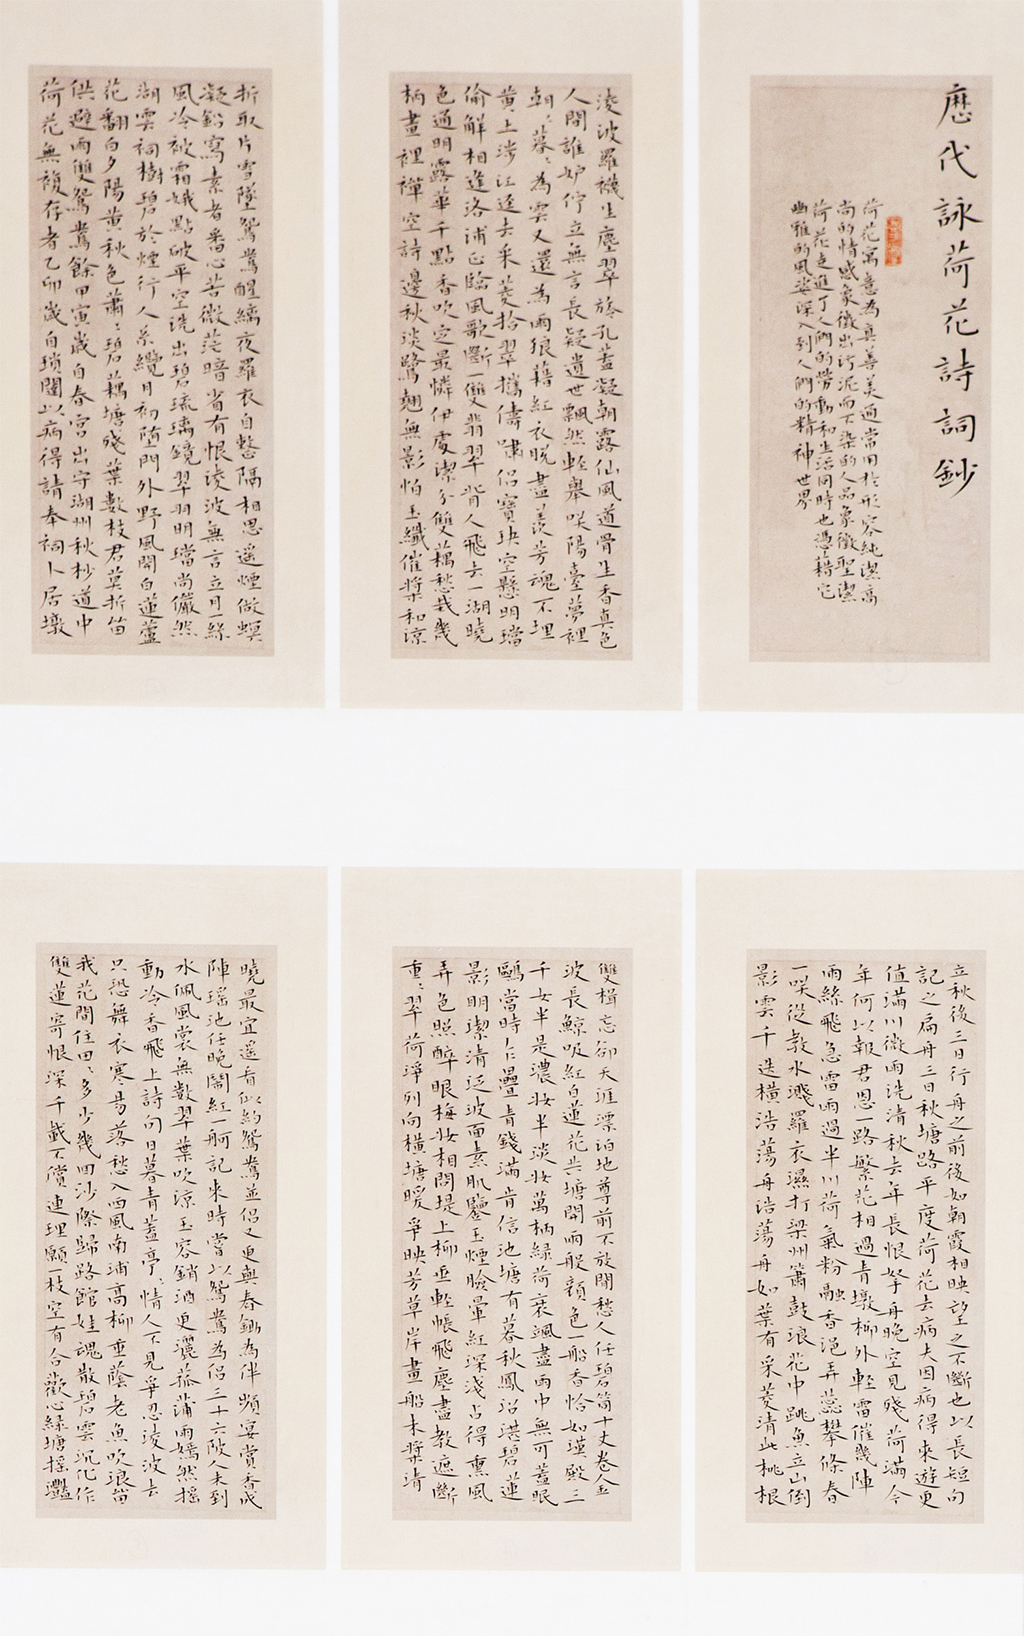 歷代詠荷花詩詞鈔
荷花寓意為真善美通常用於形容純潔高
尚的情感象徵出污泥而不染的人品象徵聖潔
荷花走進了人們的勞動和生活同時也憑藉它
幽雅的風姿深入到人們的精神世界
淩波羅襪生塵翠旌孔蓋凝朝露仙風道骨生香真色
人間誰妒佇立無言長疑遺世飄然輕舉咲陽臺夢裡
朝〻暮〻為雲又還為雨狼藉紅衣脫盡羨芳魂不埋
黃土涉江迳去采菱拾翠攜儔嘯侶寶玦空懸明璫
偷解相逢洛浦正臨風歌斷一雙翡翠背人飛去一湖曉
色通明露華千點香吹定最憐伊處潔分雙藕愁栽幾
柄畫裡禪空詩邊秋淡鷺翹無影怕玉纖催槳和涼
折取片雪墜鴛鴦醒繻夜羅衣自整隔相思遙煙做暝
凝鉛寫素者番心苦微茫暗省有恨淩波無言立月一絲
風冷被霜娥點破平空洗出碧琉璃鏡翠羽明璫尚儼然
湖雲祠樹碧於煙行人系纜月初墮門外野風開白蓮蘆
花翻白夕陽黃秋色蕭〻碧藕塘殘葉數枝君莫折留
供避雨雙鴛鴦餘甲寅歲自春宮出守湖州秋杪道中
荷花無複存者乙卯歲自瑣闥以病得請奉祠卜居墩
立秋後三日行舟之前後如朝霞相映望之不斷也以長短句
記之扁舟三日秋塘路平度荷花去病夫因病得來遊更
值滿川微雨洗清秋去年長恨拏舟晚空見殘荷滿今
年何以報君恩一路繁花相過青墩柳外輕雷催幾陣
雨絲飛急雷雨過半川荷氣粉融香浥弄蕊攀條春
一咲從教水濺羅衣濕打梁州簫鼓浪花中跳魚立山倒
影雲千迭橫浩蕩舟浩蕩舟如葉有采菱清此桃根
雙楫忘卻天涯漂泊地尊前不放閒愁人任碧筩十丈卷金
波長鯨吸紅白蓮花共塘開兩般顏色一船香恰如漢殿三
千女半是濃妝半淡妝萬柄綠荷衰颯盡雨中無可蓋眠
鷗當時乍疊青錢滿肯信池塘有暮秋鳳沼湛碧蓮
影明潔清泛波面素肌鑒玉煙臉暈紅深淺占得熏風
弄色照醉眼梅妝相間堤上柳垂輕帳飛塵盡教遮斷
重〻翠荷淨列向橫塘暖爭映芳草岸畫船未槳清
曉最宜遙看似約鴛鴦並侶又更與春鋤為伴頻宴賞香成
陣瑤池任晚鬧紅一舸記來時嘗以鴛鴦為侶三十六陂人未到
水佩風裳無數翠葉吹涼玉容銷酒更灑菰蒲雨嫣然搖
動冷香飛上詩句日暮青蓋亭〻情人不見爭忍淩波去
只恐舞衣寒易落愁入西風南浦高柳垂蔭老魚吹浪留
我花間住田〻多少幾回沙際歸路館娃魂散碧雲沉化作
雙蓮寄恨深千載不償連理願一枝空有合歡心綠塘搖灩